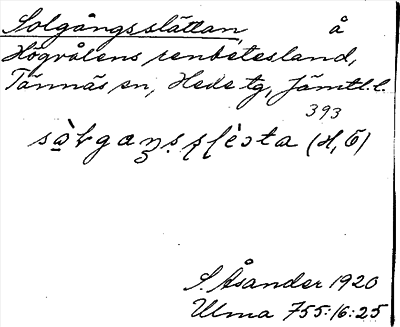 Solgångsslättan, å
Högvålens renbetesland,
Tännäs sn, Hede tg, Jämtl. l.
393
(H, Ö)
S. Åsander 1920
Ulma 755:16:25